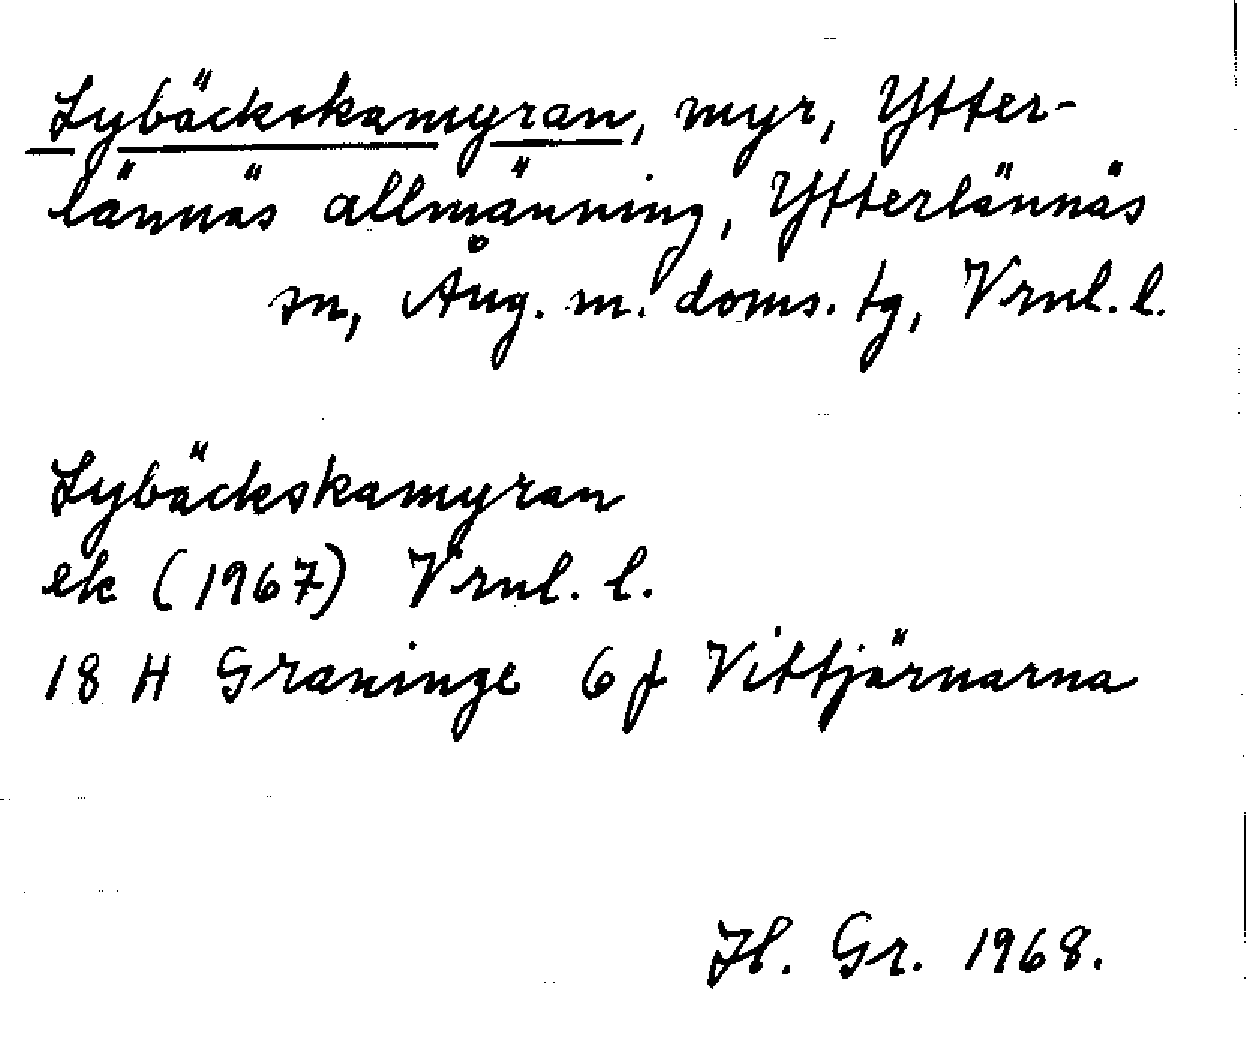 Lybäckskamyran, myr, Ytter-
lännäs allmänning, Ytterlännäs
sn, Ång. m. doms. tg, Vrnl. l.
Lybäckskamyran
ek (1967) Vrnl. l.
18 H Graninge 6 f Vittjärnarna
Hl. Gr. 1968.